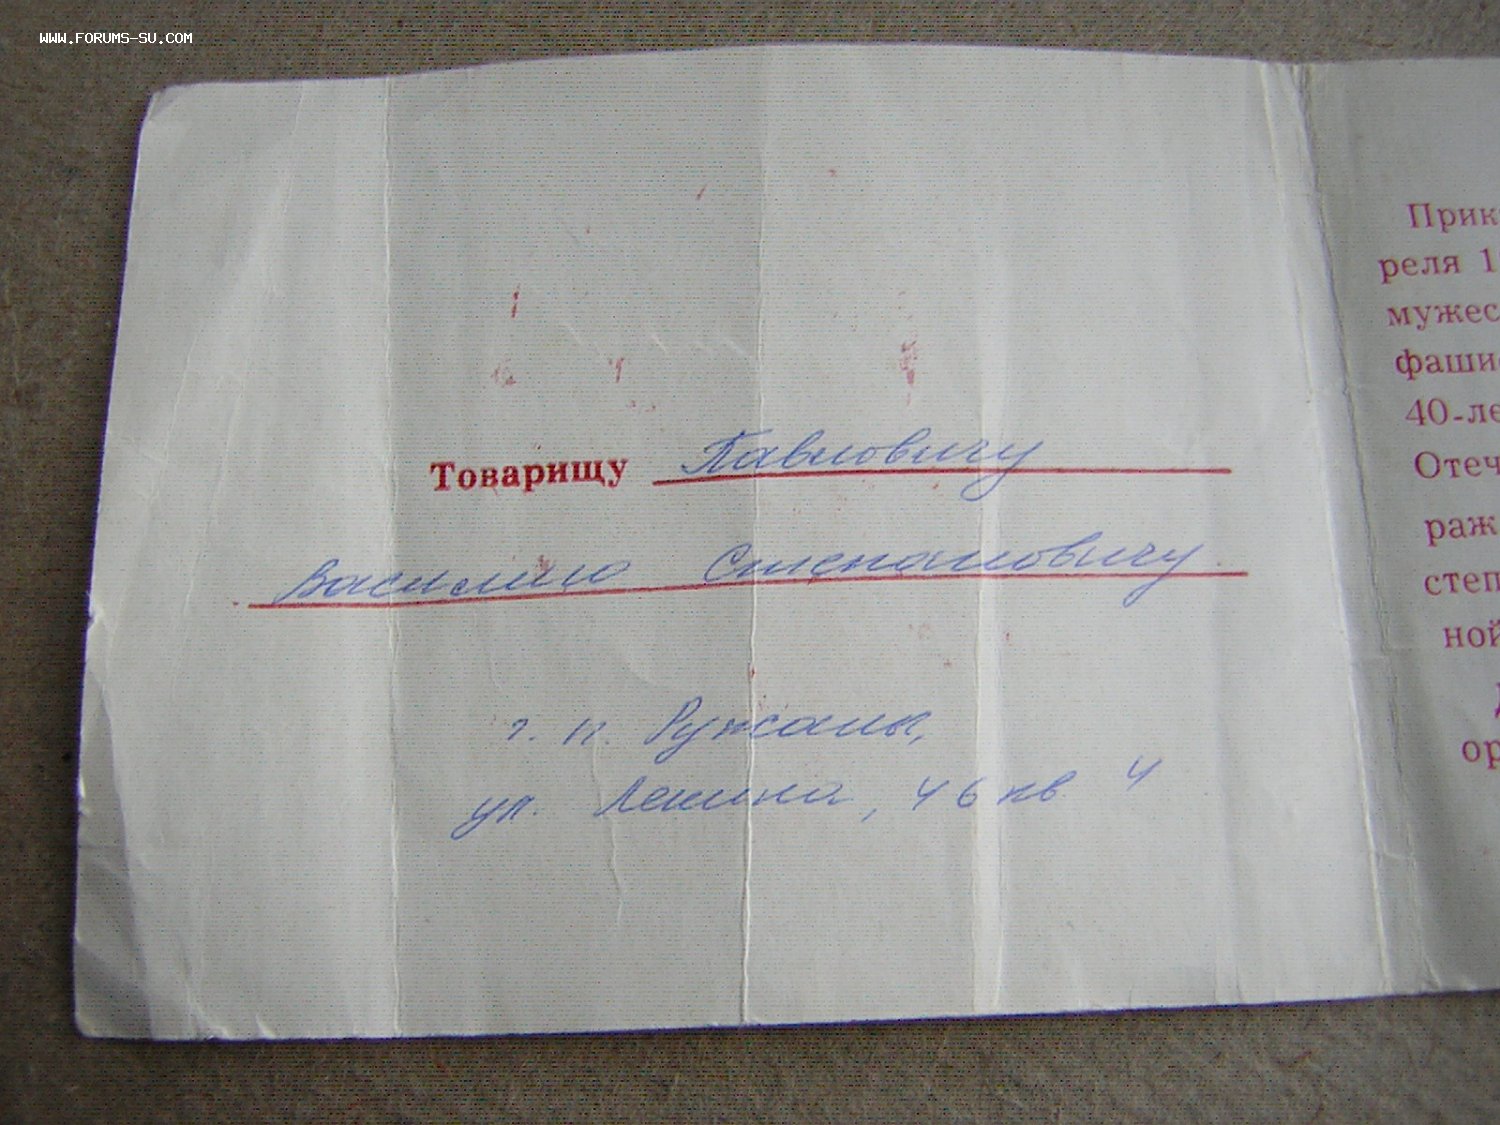 WWW.FORUMS-SU.COM
Товарищу Павловичу
Василию Степановичу
г. п. Ружаны,
ул. Ленина, 46 кв 4
Прик
реля 1
мужес
фаши
40-ле
Отеч
раж
степ
ной
ор